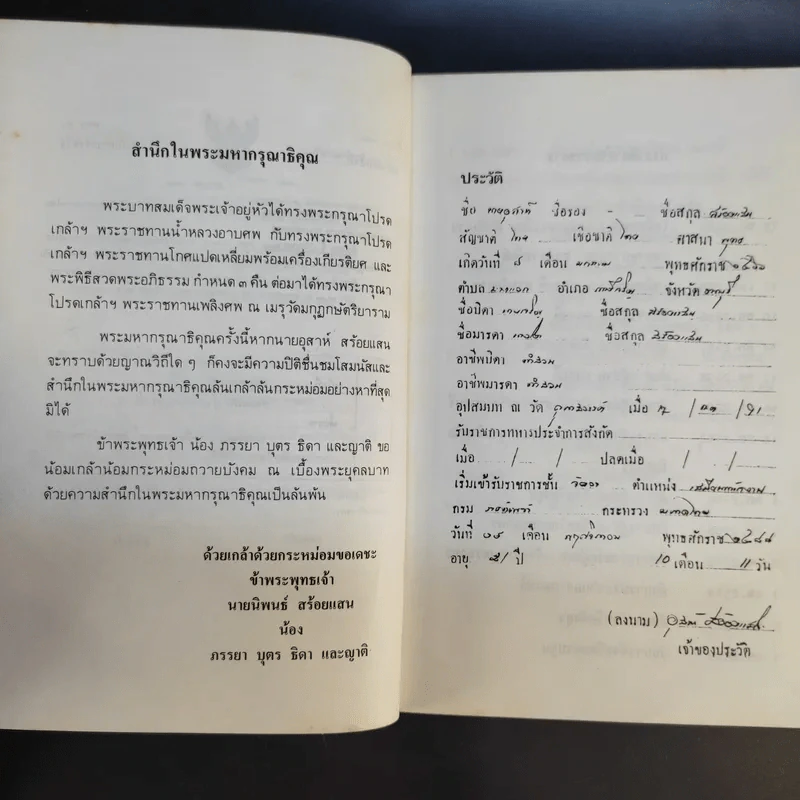 สำนึกในพระมหากรุณาธิคุณ
พระบาทสมเด็จพระเจ้าอยู่หัวได้ทรงพระกรุณาโปรด
เกล้าฯ พระราชทานน้ำหลวงอาบศพ กับทรงพระกรุณาโปรด
เกล้าฯ พระราชทานโกศแปดเหลี่ยมพร้อมเครื่องเกียรติยศ และ
พระพิธีสวดพระอภิธรรม กำหนด ๓ คืน ต่อมาได้ทรงพระกรุณา
โปรดเกล้าฯ พระราชทานเพลิงศพ ณ เมรุวัดมกุฏกษัตริยาราม
พระมหากรุณาธิคุณครั้งนี้หากนายอุสาห์ สร้อยแสน
จะทราบด้วยญาณวิถีใด ๆ ก็คงจะมีความปิติชื่นชมโสมนัสและ
สำนึกในพระมหากรุณาธิคุณล้นเกล้าล้นกระหม่อมอย่างหาที่สุด
มิได้
ข้าพระพุทธเจ้า น้อง ภรรยา บุตร ธิดา และญาติ ขอ
น้อมเกล้าน้อมกระหม่อมถวายบังคม ณ เบื้องพระยุคลบาท
ด้วยความสำนึกในพระมหากรุณาธิคุณเป็นล้นพ้น
ด้วยเกล้าด้วยกระหม่อมขอเดชะ
ข้าพระพุทธเจ้า
นายนิพนธ์ สร้อยแสน
น้อง
ภรรยา บุตร ธิดา และญาติ
ประวัติ
ชื่อ นายอุสาห์ ชื่อรอง - ชื่อสกุล สร้อยแสน
สัญชาติ ไทย เชื้อชาติ ไทย ศาสนา พุทธ
เกิดวันที่ เดือน มกราคม พุทธศักราช
ตำบล อำเภอ จังหวัด
ชื่อบิดา ชื่อสกุล สร้อยแสน
ชื่อมารดา ชื่อสกุล สร้อยแสน
อาชีพบิดา ทำสวน
อาชีพมารดา ทำสวน
อุปสมบท ณ วัด เมื่อ / /
รับราชการทหารประจำการสังกัด
เมื่อ / / ปลดเมื่อ / /
เริ่มเข้ารับราชการชั้น จัตวา ตำแหน่ง เสมียนพนักงาน
กรม กระทรวง มหาดไทย
วันที่ เดือน พุทธสักราช
อายุ ปี 10 เดือน 11 วัน
(ลงนาม) อุสาห์ สร้อยแสน
เจ้าของประวัติ